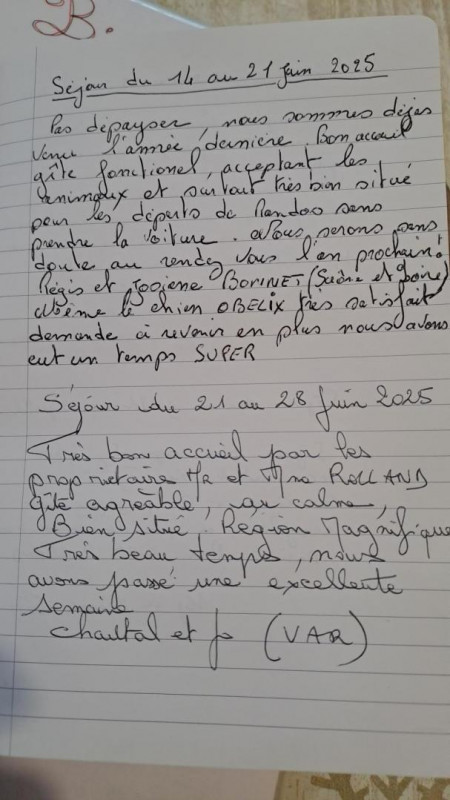 B.
Séjour du 14 au 21 Juin 2025
Pas dépayser, nous sommes déjas
venu l'année dernière. Bon accueil
gîte fonctionel, acceptant les
animaux et surtout très bien situé
pour les départs de Randos sans
prendre la voiture. Nous serons sans
doute au rendez vous l'an prochain!
Régis et Josiene (Saône et Loire)
Même le chien OBELIX très satisfait
demande à revenir en plus nous avons
eut un temps SUPER
Séjour du 21 au 28 Juin 2025
Très bon accueil par les
propriétaire Mr et Mme ROLLAND
gîte agréable, au calme,
Bien situé. Région Magnifique
Très beau temps, nous
avons passé une excellente
semaine
Chantal et (VAR)